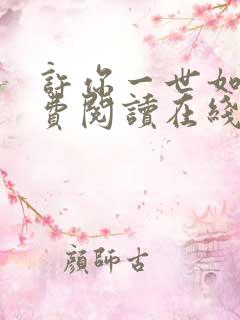 許你一世如
費閱讀在綫
顏師古